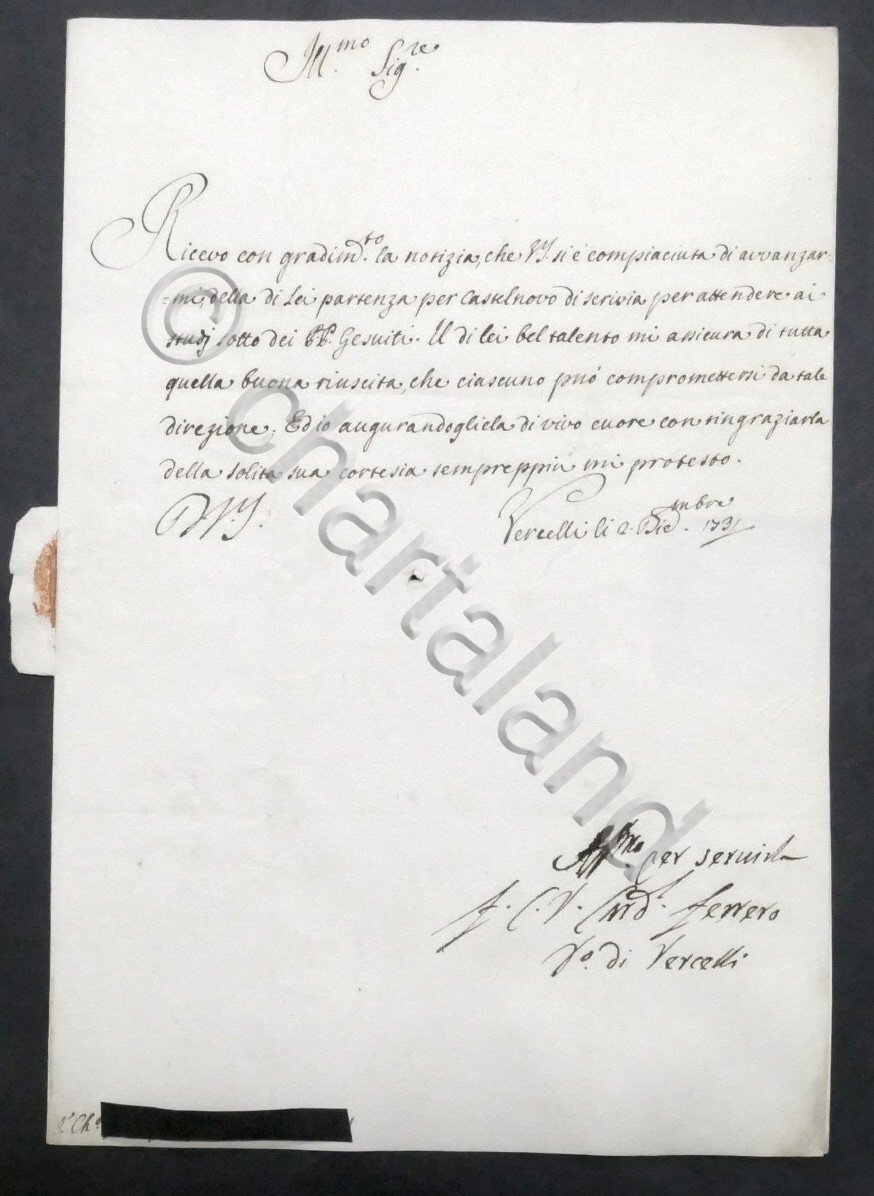 Ill.mo Sig.re
Ricevo con gradim.to la notizia, che V.S. si è compiaciuta di avvanzar=
=mi della di Lei partenza per Castelnovo di Scrivia per attendere ai
studj sotto dei PP. Gesuiti. Il di lei bel talento mi assicura di tutta
quella buona riuscita, che ciascuno può compromettersi da tale
direzione. Ed io augurandogliela di vivo cuore con ringraziarla
della solita sua cortesia sempreppiù mi protesto.
D.V.S. Vercelli li 2. Dic.mbre 173
Aff.mo per servirla
f. C. V. Card. Ferrero
V.o di Vercelli
© chartaland